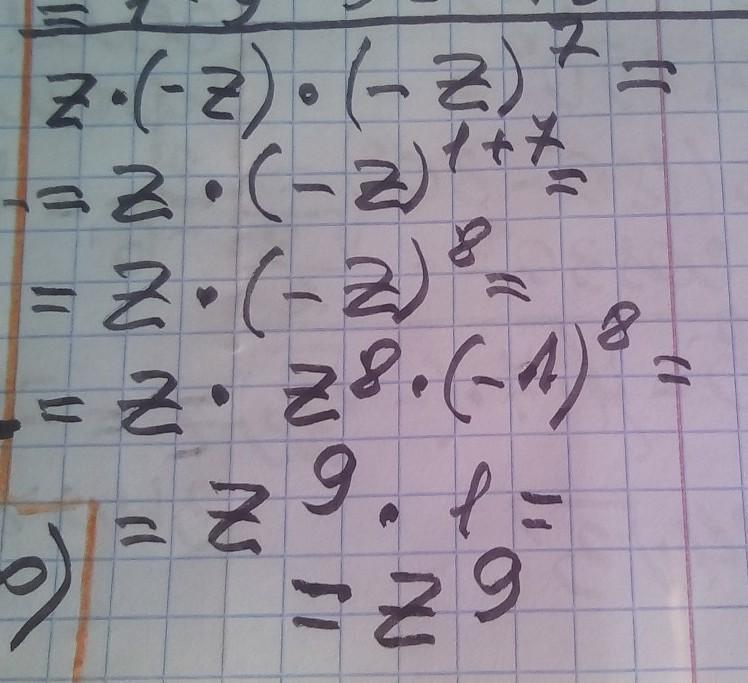 z·(-z)·(-z)^7 =
= z·(-z)^{1+7} =
= z·(-z)^8 =
= z·z^8·(-1)^8 =
= z^9·1 =
= z^9